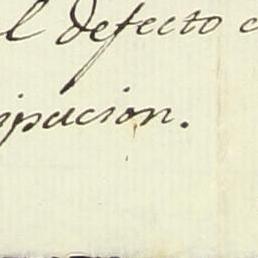 l defecto
ipacion.